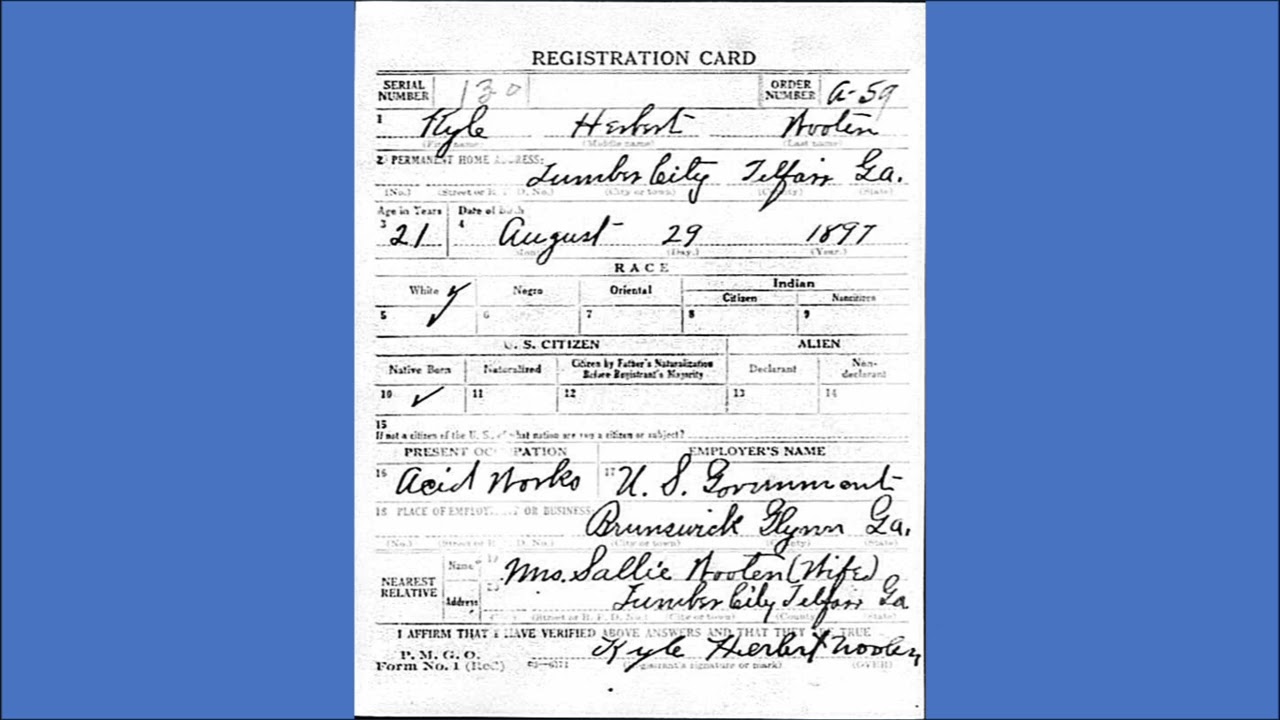 REGISTRATION CARD
SERIAL NUMBER 130 ORDER NUMBER A-59
1 Kyle Herbert Wooten
(First name) (Middle name) (Last name)
2 PERMANENT HOME ADDRESS:
Lumber City Telfair Ga.
(No.) (Street or R. F. D. No.) (City or town) (County) (State)
Age in Years Date of Birth
3 21 4 August 29 1897
(Month.) (Day.) (Year.)
RACE
White ✓ Negro Oriental Indian
Citizen Noncitizen
5 ✓ 6 7 8 9
U. S. CITIZEN ALIEN
Native Born Naturalized Citizen by Father's Naturalization Before Registrant's Majority Declarant Non-declarant
10 ✓ 11 12 13 14
15
If not a citizen of the U. S., of what nation are you a citizen or subject?
PRESENT OCCUPATION EMPLOYER'S NAME
16 Acid Works 17 U. S. Government
18 PLACE OF EMPLOYMENT OR BUSINESS:
Brunswick Glynn Ga.
(No.) (Street or R. F. D. No.) (City or town) (County) (State)
NEAREST RELATIVE
Name 19 Mrs. Sallie Wooten (Wife)
Address 20 Lumber City Telfair Ga
(No.) (Street or R. F. D. No.) (City or town) (County) (State)
I AFFIRM THAT I HAVE VERIFIED ABOVE ANSWERS AND THAT THEY ARE TRUE
P. M. G. O.
Form No. 1 (Red) Kyle Herbert Wooten
(Registrant's signature or mark) (OVER)